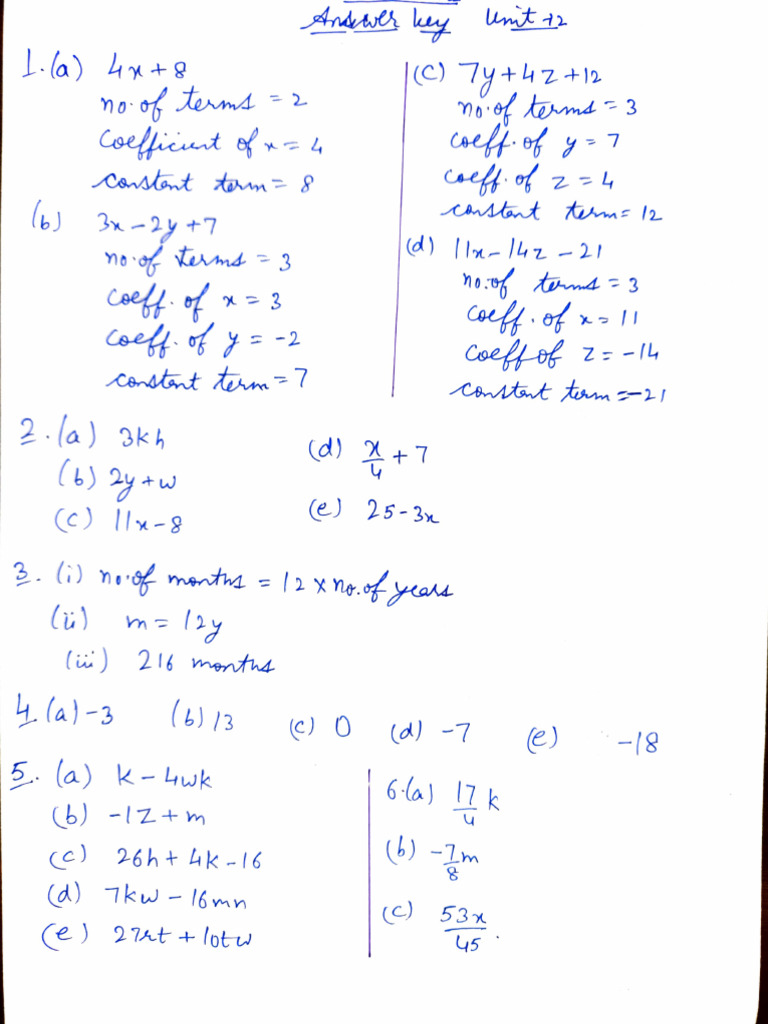 Answer key Unit-2
1.(a) 4x+8
no.of terms = 2
Coefficient of x = 4
constant term = 8
(b) 3x-2y+7
no.of terms = 3
coeff. of x = 3
coeff. of y = -2
constant term = 7
(C) 7y+4z+12
no.of terms = 3
coeff. of y = 7
coeff. of z = 4
constant term = 12
(d) 11x-14z-21
no.of terms = 3
coeff. of x = 11
coeff of z = -14
constant term = -21
2.(a) 3kh
(b) 2y+w
(c) 11x-8
(d) x/4 + 7
(e) 25-3x
3. (i) no.of months = 12 x no.of years
(ii) m = 12y
(iii) 216 months
4.(a) -3 (b) 13 (c) 0 (d) -7 (e) -18
5. (a) k-4wk
(b) -1z+m
(c) 26h+4k-16
(d) 7kw-16mn
(e) 27rt+10tw
6.(a) 17/4 k
(b) -7/8 m
(c) 53x/45.